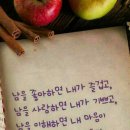 남을 좋아하면 내가 즐겁고,
남을 사랑하면 내가 기쁘고,
남을 이해하면 내 마음이